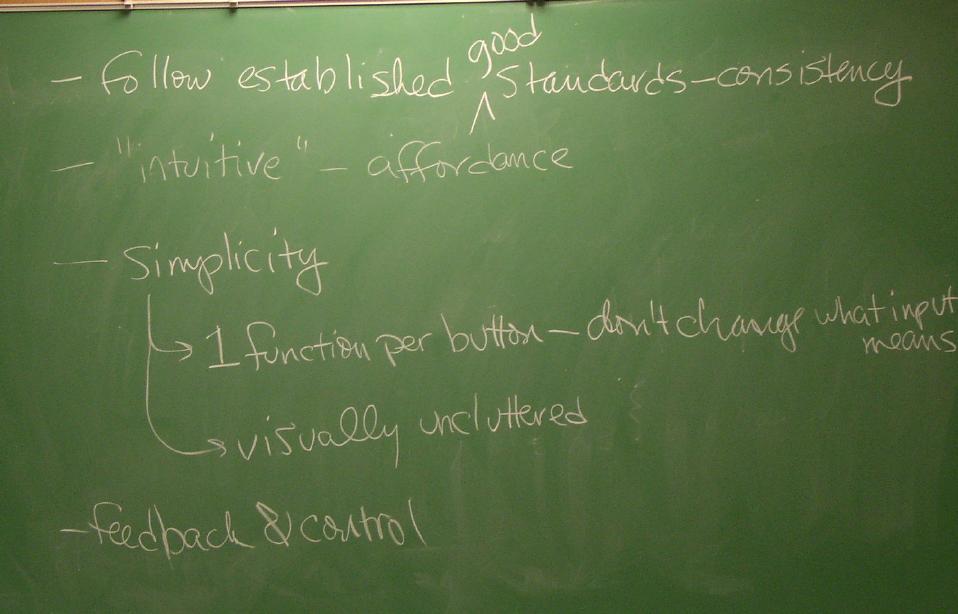 - Follow established good standards - consistency
- "intuitive" - affordance
- Simplicity
1 function per button - don't change what input means
visually uncluttered
- feedback & control